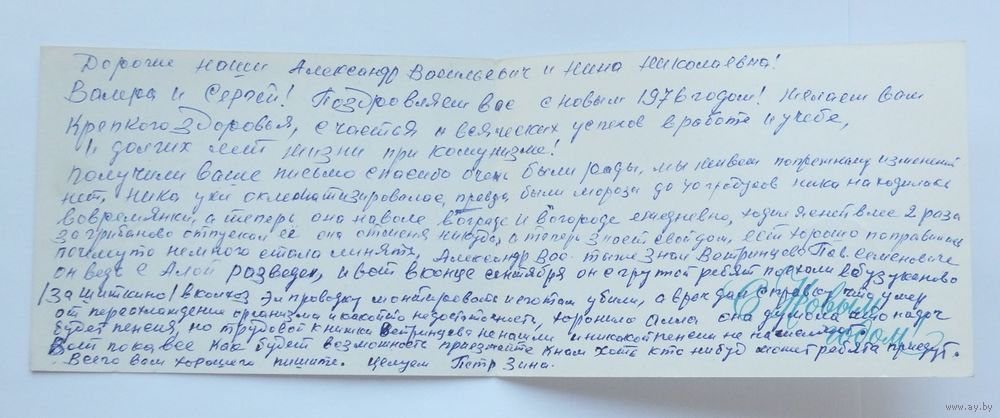 Дорогие наши Александр Васильевич и Нина Николаевна!
Валера и Сергей! Поздровляем вас с новым 1976 годом! Желаем вам
Крепкого здоровья, счастья и всяческих успехов в работе и учебе,
И долгих лет жизни при комунизме!
Получили ваше письмо спасибо очень были рады, мы живем попрежнему изменений
нет, Ника уже, правда были мороза до 40 градусов ника находилась
вовремянки, а теперь она на воле в ограде и в огороде ежедневно, 2 раза
за отпускали её она от меня никуда, а теперь знает свой дом, ест хорошо поправилась
почемуто немного стала линять, Александр Вас. ты же знал Ветринцова Пав. Семеновича
он ведь с Алой разведен, и вот в конце сентября он с групой ребят поехали в
/За Шиткино/ в колхоз эл проводку монтировать и его там убили, а врач дал справку что умер
от переохлаждения организма и какойто недостаточность, хоронила Алла она думала что
будет пенсия, но трудовой книжки Ветринцова не нашли и никакой пенсии не
Вот пока все как будет возможность приезжайте к нам хотя кто нибудь может ребята приедут.
Всего вам хорошего пишите. Целуем Петр Зина.
С Новым
годом
www.ay.by